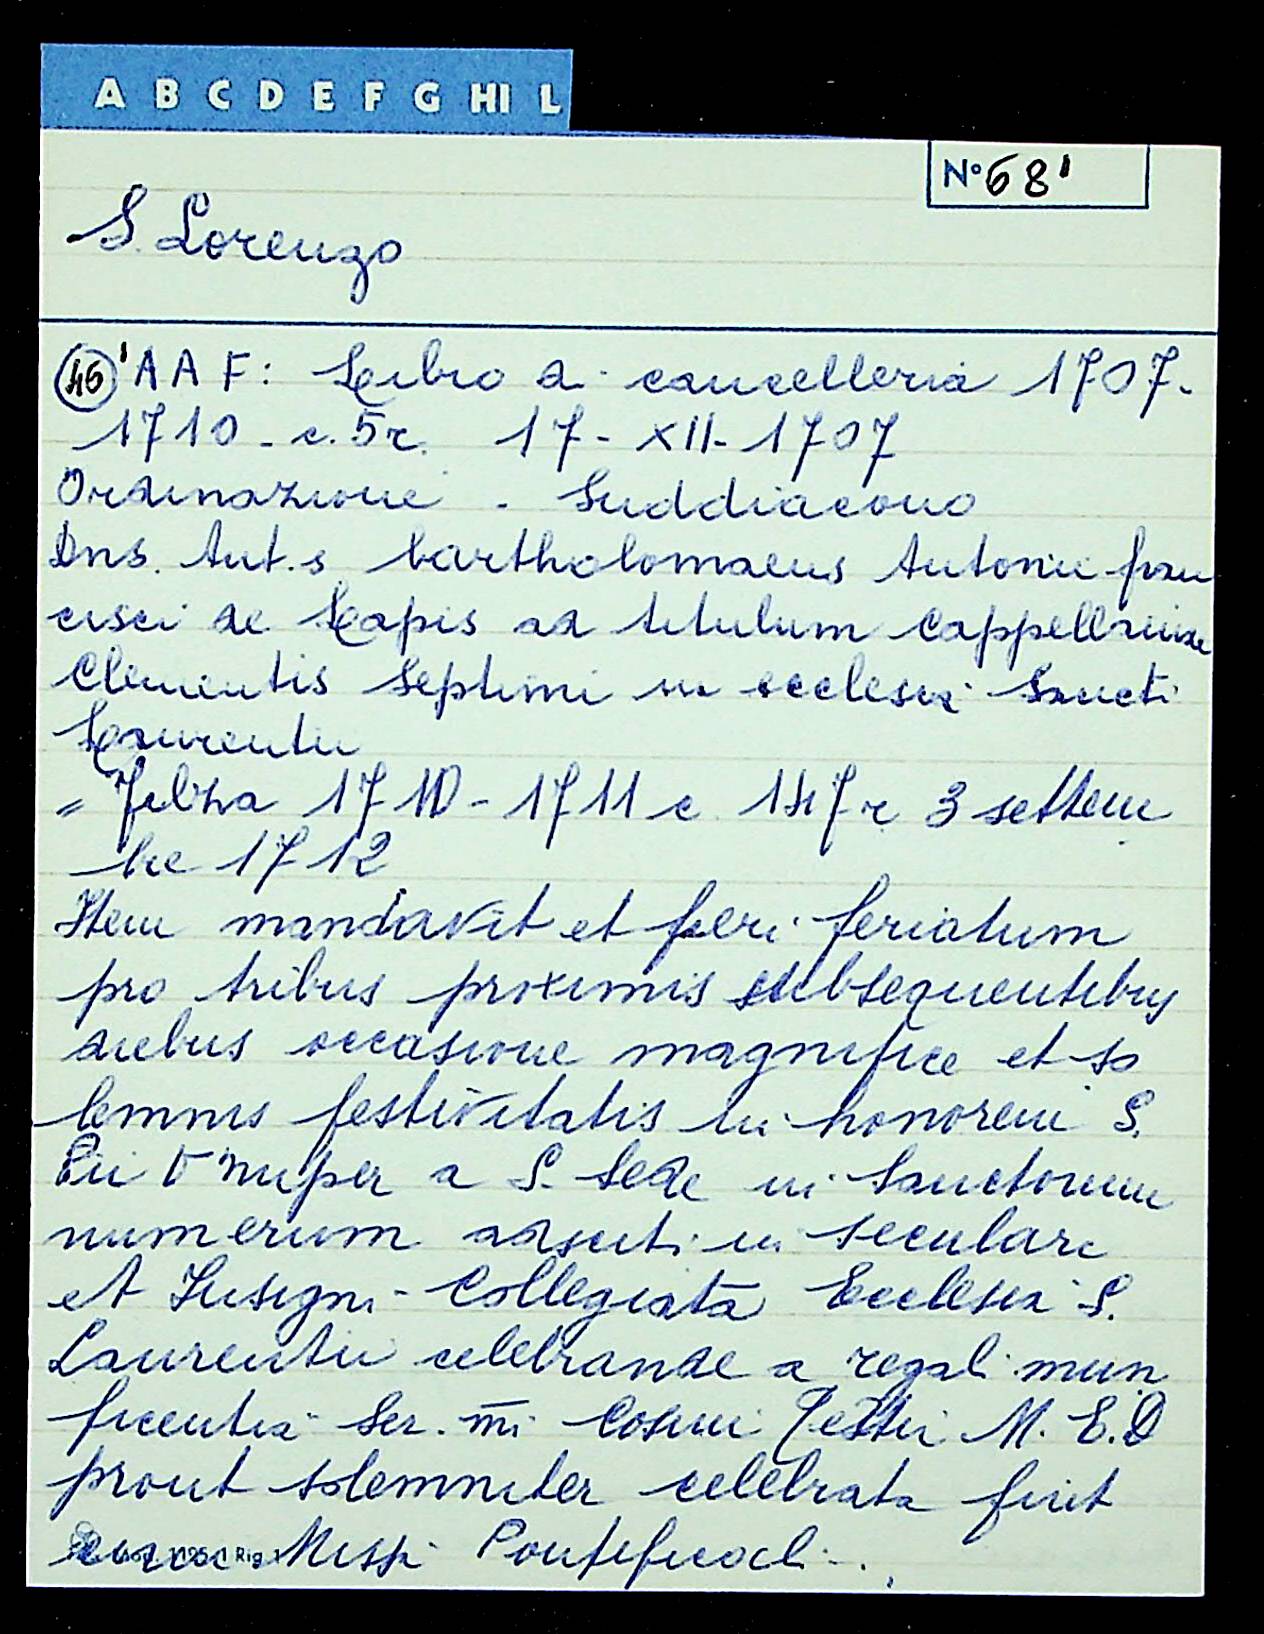 A B C D E F G HI L
N° 68'
S. Lorenzo
46' A A F: Libro di cancelleria 1707-
1710 - c. 5r. 17 - XII - 1707
Ordinazione - Suddiacono
Dns. Ant.s bartholomaeus Antonii fran
cisci de Lapis ad titulum Cappellaniae
Clementis Septimi in ecclesia Sancti
Laurentii
" Filza 1710 - 1711 c. 147r 3 settem
bre 1712
Item mandavit et fieri feriatum
pro tribus proximis subsequentibus
diebus occasione magnifice et so
lemnis festivitatis in honorem S.
Pii V nuper a S. Sede in Sanctorum
numerum adscti in seculari
et Insigni Collegiata Ecclesia S.
Laurentii celebrande a regali muni
ficentia Ser.mi Cosmi Tertii M. E. D
prout solemniter celebrata fuit
Missa Pontificali.